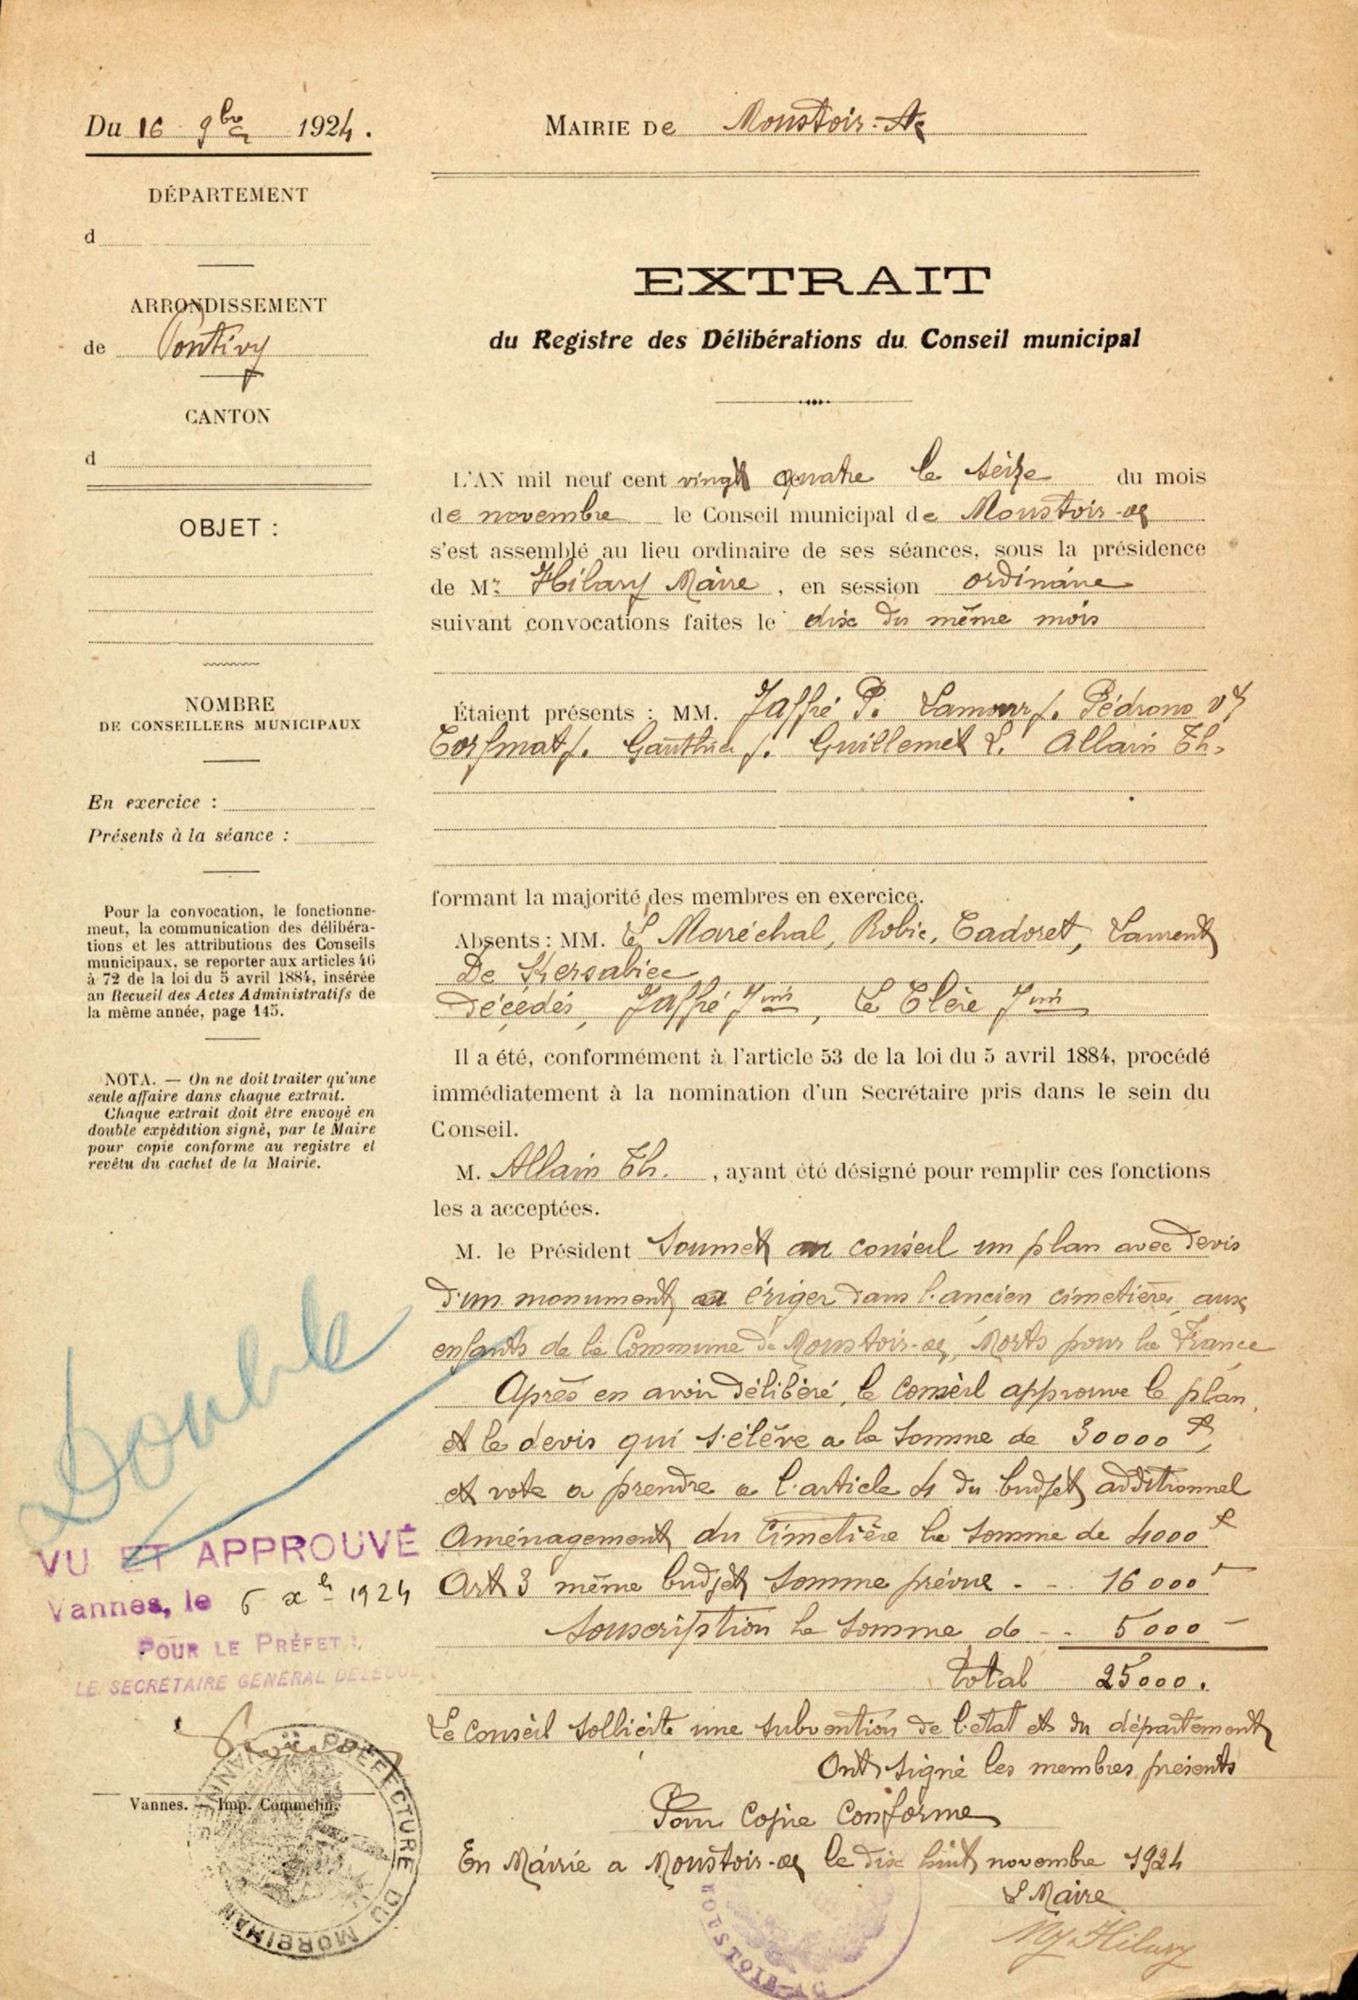 Du 16 9bre 1924.
DÉPARTEMENT
d
ARRONDISSEMENT
de Pontivy
CANTON
d
OBJET :
NOMBRE
DE CONSEILLERS MUNICIPAUX
En exercice :
Présents à la séance :
Pour la convocation, le fonctionne-
ment, la communication des délibéra-
tions et les attributions des Conseils
municipaux, se reporter aux articles 46
à 72 de la loi du 5 avril 1884, insérée
au Recueil des Actes Administratifs de
la même année, page 145.
NOTA. — On ne doit traiter qu'une
seule affaire dans chaque extrait.
Chaque extrait doit être envoyé en
double expédition signé, par le Maire
pour copie conforme au registre et
revêtu du cachet de la Mairie.
Double
VU ET APPROUVÉ
Vannes, le 6 Xe 1924
POUR LE PRÉFET :
LE SECRÉTAIRE GÉNÉRAL DÉLÉGUÉ
Vannes. — Imp. Commelin.
PRÉFECTURE DU MORBIHAN
MAIRIE De Moustoir-Ac
EXTRAIT
du Registre des Délibérations du Conseil municipal
L'AN mil neuf cent vingt quatre le seize du mois
de novembre le Conseil municipal de Moustoir-ac
s'est assemblé au lieu ordinaire de ses séances, sous la présidence
de Mr Hilary Maire, en session ordinaire
suivant convocations faites le dix du même mois
Étaient présents : MM. Jaffré P. Lamour J. Pédrono
J. Gauthier J. Guillemet L. Allain Th.
formant la majorité des membres en exercice.
Absents : MM. Le Maréchal, Robic, Cadoret, Laurent
De Kersabiec
Décédés, Jaffré Jm, Le Clère Jm
Il a été, conformément à l'article 53 de la loi du 5 avril 1884, procédé
immédiatement à la nomination d'un Secrétaire pris dans le sein du
Conseil.
M. Allain Th. , ayant été désigné pour remplir ces fonctions
les a acceptées.
M. le Président soumet au conseil un plan avec devis
d'un monument a ériger dans l'ancien cimetière aux
enfants de la Commune de Moustoir-ac, Morts pour la France
Après en avoir délibéré, le conseil approuve le plan
et le devis qui s'élève a la somme de 30000 f,
et vote a prendre a l'article 4 du budget additionnel
Aménagement du Cimetière la somme de 4000 f
Art 3 même budget somme prévue - - 16 000 -
Souscription la somme de - - 5 000 -
total 25 000.
Le conseil sollicite une subvention de l'etat et du département
Ont signé les membres présents
Pour Copie Conforme
En Mairie a Moustoir-ac le dix huit novembre 1924
Le Maire
My Hilary
MOUSTOIR-AC